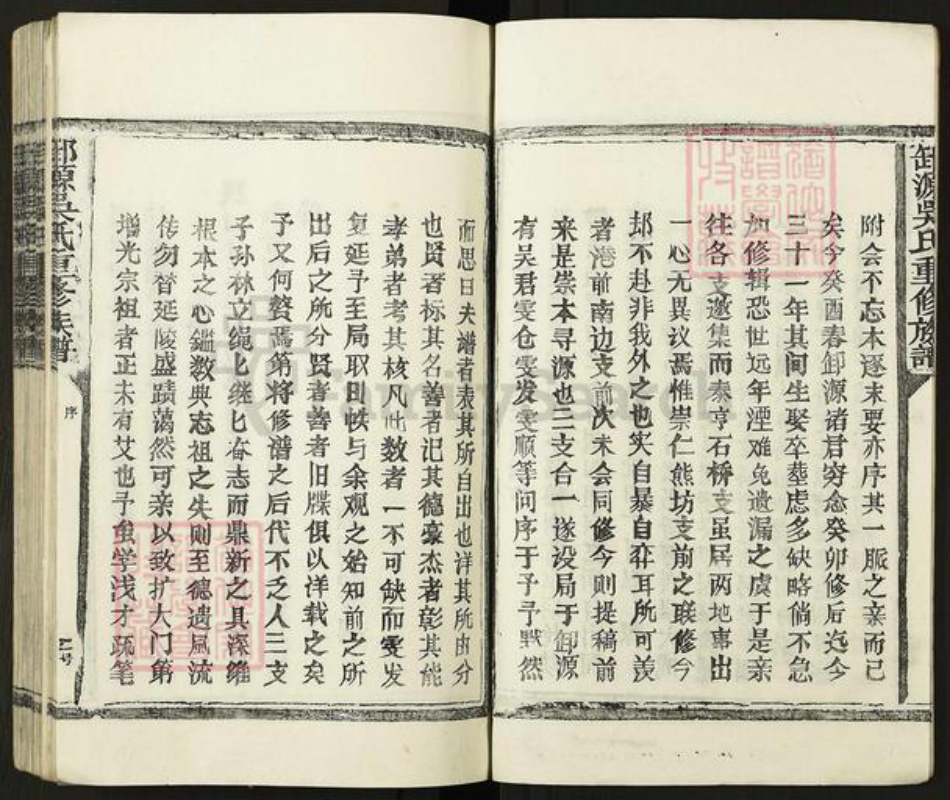 卸源吳氏重修族譜
附会不忘本逐末要亦序其一脈之亲而已
矣今癸酉春卸源诸君穷念癸卯修后迄今
三十一年其间生娶卒塟虑多缺略倘不急
加修辑恐世远年湮难免遗漏之虞于是亲
往各支邀集而泰亨石桥支虽居两地事出
一心无异议焉惟崇仁熊坊支前之联修今
却不赴非我外之也实自暴自弃耳所可羡
者港前南边支前次未会同修今则提稿前
来是崇本寻源也三支合一遂设局于卸源
有吴君雯仓雯发雯顺等问序于予予默然
而思曰夫谱者表其所自出也洋其所由分
也贤者标其名善者记其德豪杰者彰其能
孝弟者考其核凡此数者一不可缺而雯发
复延予至局取旧帙与余观之始知前之所
出后之所分贤者善者旧牒俱以洋载之矣
予又何赘焉第将修谱之后代不乏人三支
子孙林立绳匕继匕奋志而鼎新之具深维
根本之心鑑数典志祖之失则至德遗風流
传勿替延陵盛蹟蔼然可亲以致扩大门第
增光宗祖者正未有艾也予虽学浅才疏笔
卸源吳氏重修族譜
序